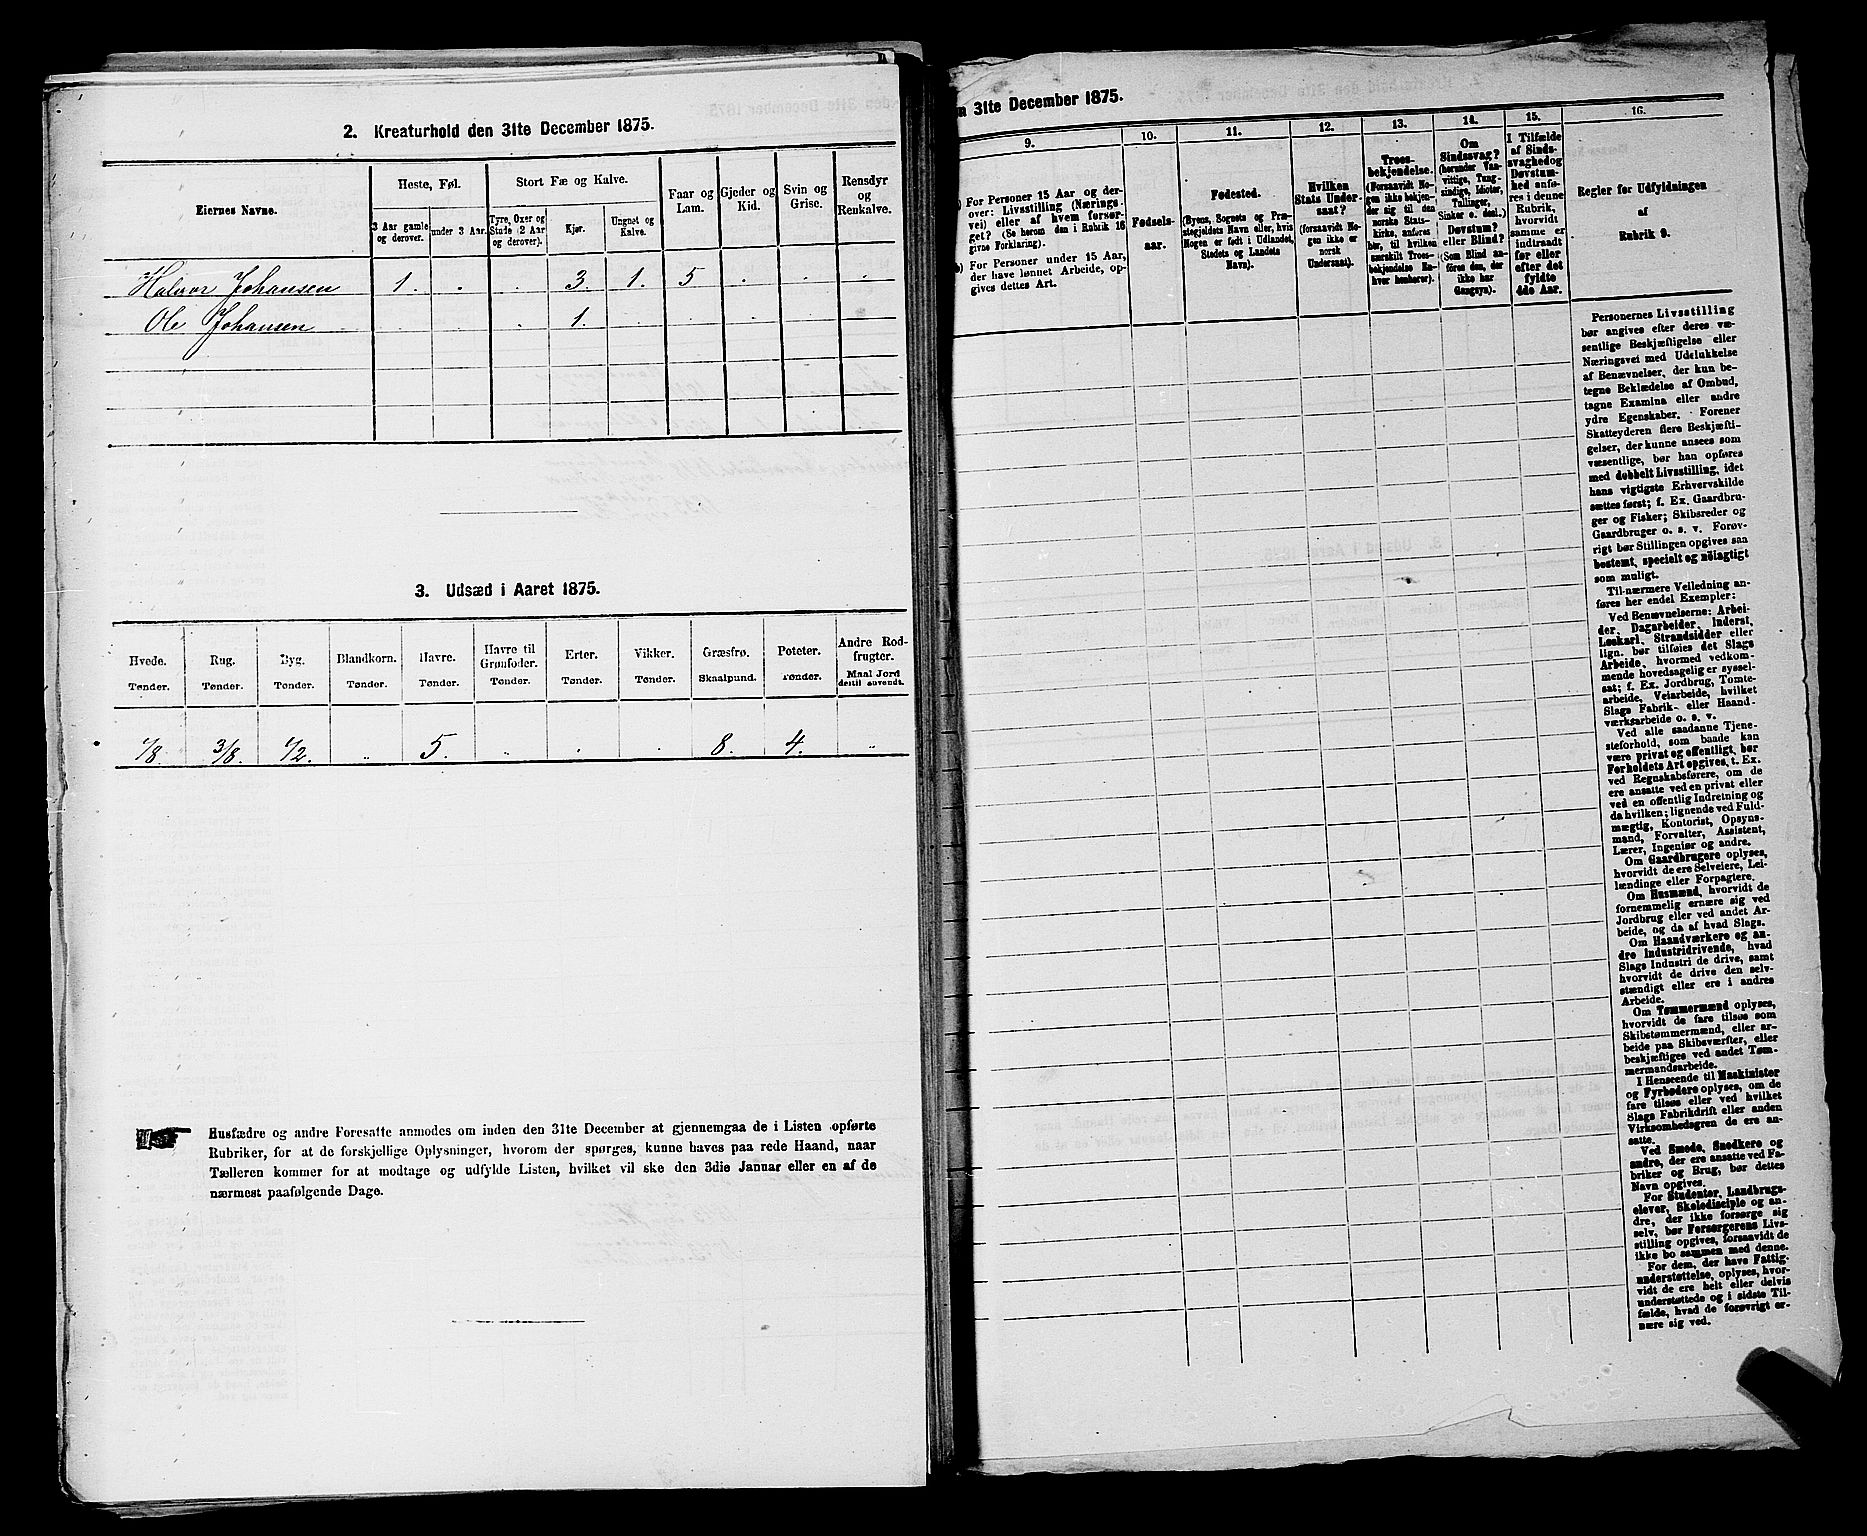 2. Kreaturhold den 31te December 1875.
Eiernes Navne.
Heste, Føl.
Stort Fæ og Kalve.
Faar og Lam.
Gjeder og Kid.
Svin og Grise.
Rensdyr og Renkalve.
3 Aar gamle og derover.
under 3 Aar.
Tyre, Oxer og Stude (2 Aar og derover).
Kjør.
Ungnøt og Kalve.
Halvor Johansen 1. „ „ 3. 1. 5 „ „ „
Ole Johansen „ „ „ 1. „ „ „ „ „
3. Udsæd i Aaret 1875.
Hvede. Rug. Byg. Blandkorn. Havre. Havre til Grønfoder. Erter. Vikker. Græsfrø. Poteter. Andre Rodfrugter.
Tønder. Tønder. Tønder. Tønder. Tønder. Tønder. Tønder. Tønder. Skaalpund. Tønder. Maal Jord dertil anvendt.
1/8 3/8. 1/2. „ 5. „ „ „ 8. 4. „
Husfædre og andre Foresatte anmodes om inden den 31te December at gjennemgaa de i Listen opførte
Rubriker, for at de forskjellige Oplysninger, hvorom der spørges, kunne haves paa rede Haand, naar
Tælleren kommer for at modtage og udfylde Listen, hvilket vil ske den 3die Januar eller en af de
nærmest paafølgende Dage.
31te December 1875.
9. 10. 11. 12. 13. 14. 15. 16.
For Personer 15 Aar og derover: Livsstilling (Næringsvei) eller af hvem forsørget? (Se herom den i Rubrik 16 givne Forklaring).
b) For Personer under 15 Aar, der have lønnet Arbeide, opgives dettes Art.
Fødselsaar.
Fødested.
(Byens, Sognets og Præstegjeldets Navn eller, hvis Nogen er født i Udlandet, Stedets og Landets Navn).
Hvilken Stats Undersaat?
(forsaavidt Nogen ikke er norsk Undersaat).
Troesbekjendelse.
(Forsaavidt Nogen ikke bekjender sig til den norske Statskirke, anføres bør, til hvilken særskilt Troesbekjendelse Enhver henhører).
Om Sindssvag?
(herunder Vanvittige, Tungsindige, Idioter, Tullinger, Sinker o. desl.)
Døvstum? eller Blind?
(Som Blind anføres den, der ikke har Gangsyn).
I Tilfælde af Sindssvaghed og Døvstumhed anføres i denne Rubrik, hvorvidt samme er indtraadt før eller efter det fyldte 4de Aar.
Regler for Udfyldningen
af
Rubrik 9.
Personernes Livsstilling
bør angives efter deres væ-
sentlige Beskjæftigelse eller
Næringsvei med Udelukkelse
af Benævnelser, der kun be-
tegne Beklædelse af Ombud,
tagne Examina eller andre
ydre Egenskaber. Forener
Skatteyderen flere Beskjæfti-
gelser, der kunne ansees som
væsentlige, bør han opføres
med dobbelt Livsstilling, idet
hans vigtigste Erhvervskilde
sættes først; f. Ex. Gaardbru-
ger og Fisker; Skibsreder og
Gaardbruger o. s. v. Forøv-
rigt bør Stillingen opgives saa
bestemt, specielt og nöiagtigt
som muligt.
Til nærmere Veiledning an-
føres her endel Exempler:
Ved Benævnelserne: Arbei-
der, Dagarbeider, Inderst,
Løskarl, Strandsidder eller
lign. bør tilføies det Slags
Arbeide, hvormed vedkom-
mende hovedsagelig er syssel-
sat; f. Ex. Jordbrug, Tomte-
arbeide, Veiarbeide, hvilket
Slags Fabrik- eller Haand-
værksarbeide o. s. v.
Ved alle saadanne Tjene-
steforhold, som baade kan
være privat og offentligt, bør
Forholdets Art opgives, t. Ex.
ved Regnskabsførere, om de
ere ansatte ved en privat eller
ved en offentlig Indretning og
da hvilken; lignende ved Fuld-
mægtig, Kontorist, Opsyns-
mand, Forvalter, Assistent,
Lærer, Ingeniør og andre.
Om Gaardbrugere oplyses,
hvorvidt de ere Selveiere, Lei-
lændinge eller Forpagtere.
Om Husmænd, hvorvidt de
fornemmelig ernære sig ved
Jordbrug eller ved andet Ar-
beide, og da af hvad Slags.
Om Haandværkere og an-
dre Industridrivende, hvad
Slags Industri de drive, samt
hvorvidt de drive den selv-
stændigt eller ere i andres
Arbeide.
Om Tømmermænd oplyses,
hvorvidt de fare tilsøs som
Skibstømmermænd, eller ar-
beide paa Skibsværfter, eller
beskjæftiges ved andet Tøm-
mermandsarbeide.
I Henseende til Maskinister
og Fyrbødere oplyses, om de
fare tilsøs eller ved hvilket
Slags Fabrikdrift eller anden
Virksomhedsgren de ere an-
satte.
Ved Smede, Snedkere og
andre, der ere ansatte ved Fa-
briker og Brug, bør dettes
Navn opgives.
For Studenter, Landbrugs-
elever, Skoledisciple og an-
dre, der ikke forsørge sig
selv, bør Forsørgerens Livs-
stilling opgives, forsaavidt de
ikke bo sammen med denne.
For dem, der have Fattig-
understøttelse, oplyses, hvor-
vidt de ere helt eller delvis
understøttede og i sidste Til-
fælde, hvad de forøvrigt er-
nære sig ved.